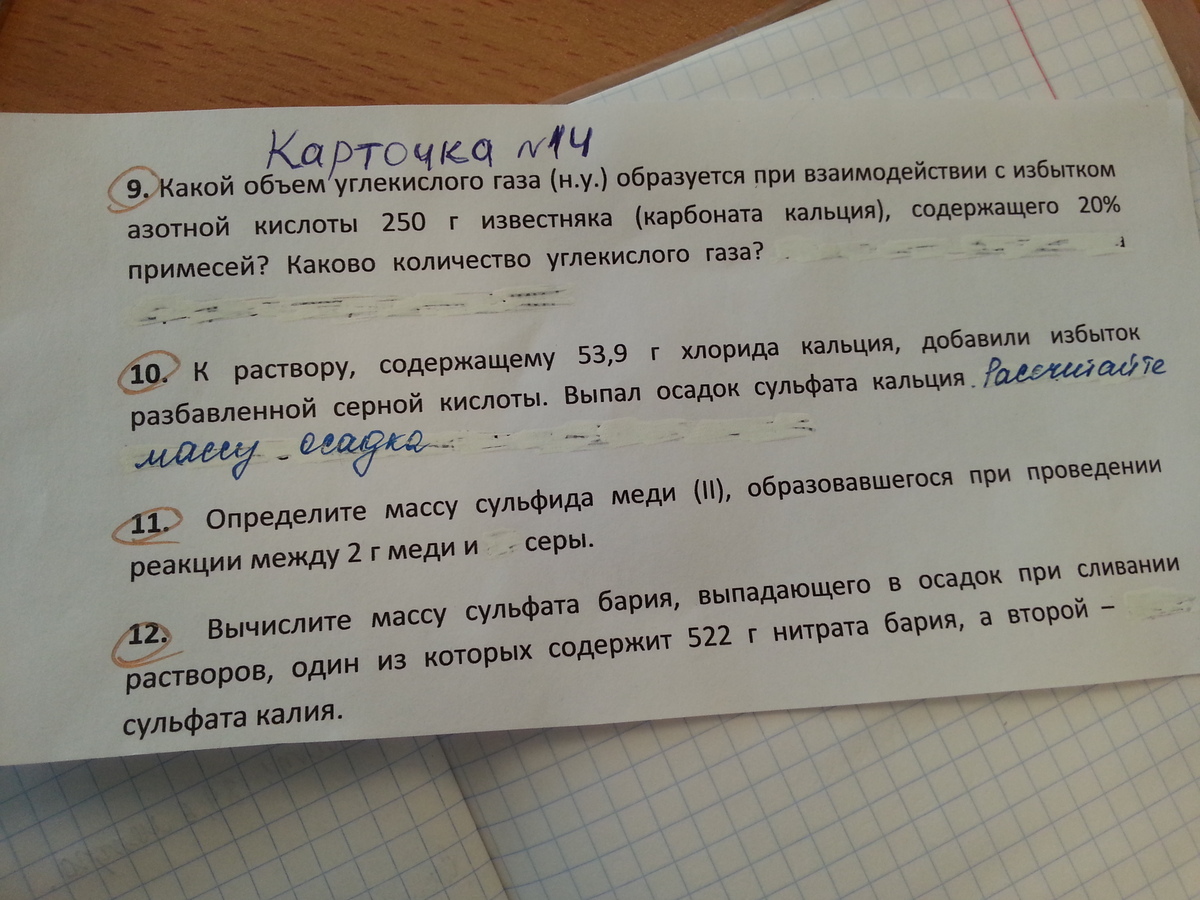 Карточка №14
9. Какой объем углекислого газа (н.у.) образуется при взаимодействии с избытком
азотной кислоты 250 г известняка (карбоната кальция), содержащего 20%
примесей? Каково количество углекислого газа?
10. К раствору, содержащему 53,9 г хлорида кальция, добавили избыток
разбавленной серной кислоты. Выпал осадок сульфата кальция. Рассчитайте
массу осадка
11. Определите массу сульфида меди (II), образовавшегося при проведении
реакции между 2 г меди и серы.
12. Вычислите массу сульфата бария, выпадающего в осадок при сливании
растворов, один из которых содержит 522 г нитрата бария, а второй –
сульфата калия.